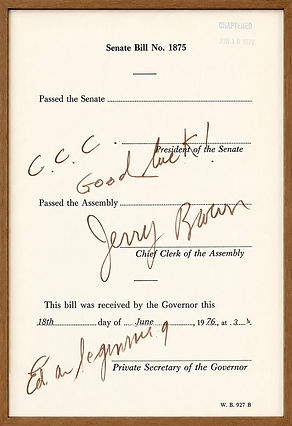 CHAPTERED
JUN 18 1976
Senate Bill No. 1875
Passed the Senate
C. C. C.
President of the Senate
Good luck!
Passed the Assembly
Jerry Brown
Chief Clerk of the Assembly
This bill was received by the Governor this
18th day of June, 1976, at 3
Private Secretary of the Governor
W. B. 927 B